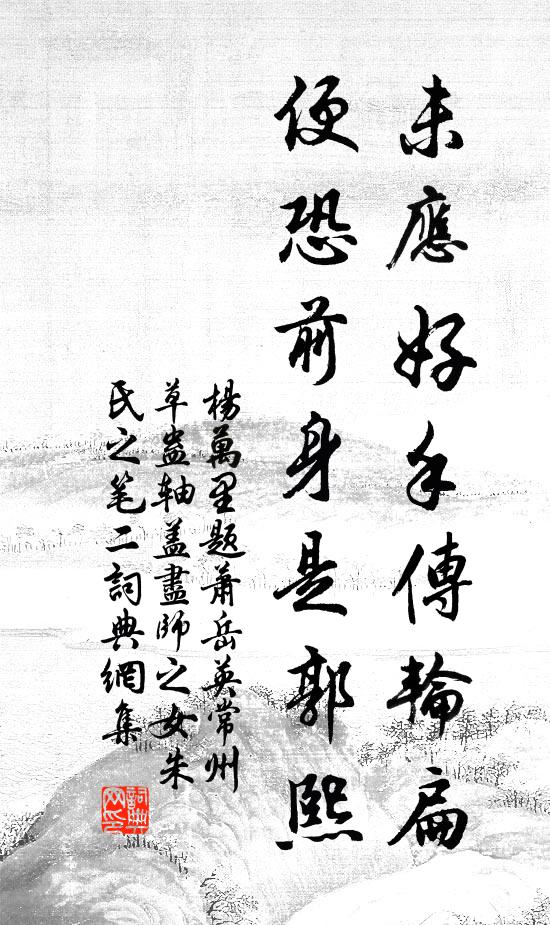 未應好手傳輪扁
便恐前身是郭熙
楊萬里題蕭岳英常州
草蟲軸蓋畫師之女朱
氏之笔二詞典網集
詞典网印